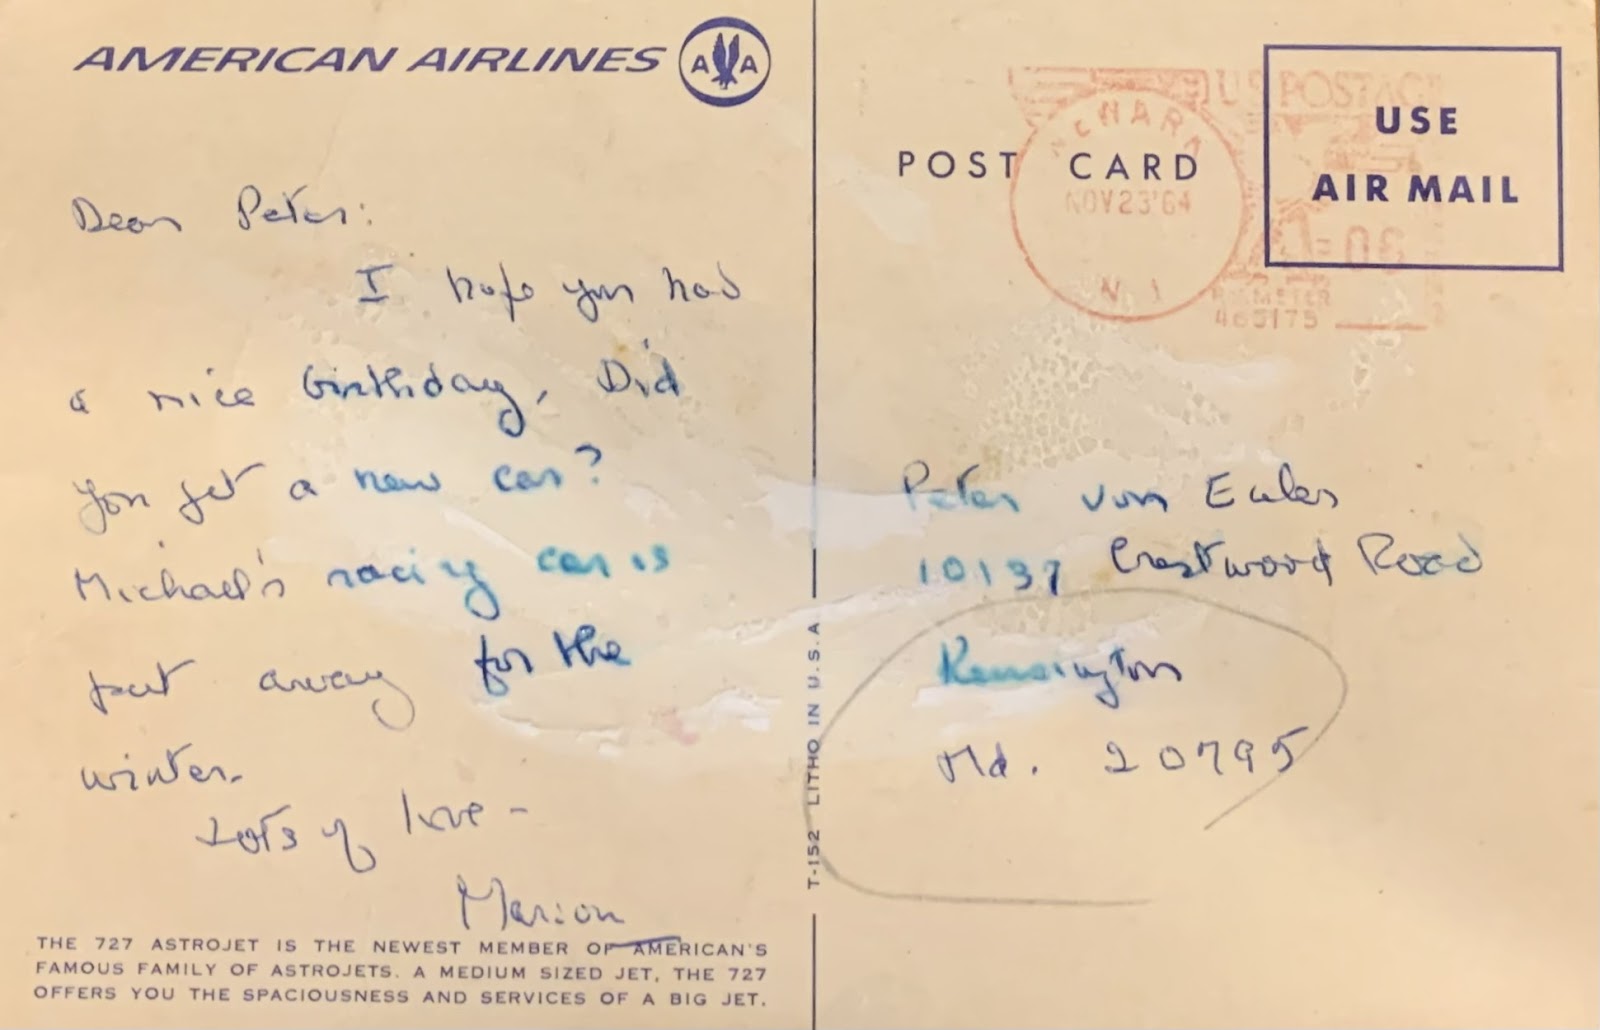 AMERICAN AIRLINES AA
Dear Peter:
I hope you had
a nice birthday, Did
you get a new car?
Michael's racing car is
put away for the
winter.
Lots of love -
Marion
THE 727 ASTROJET IS THE NEWEST MEMBER OF AMERICAN'S
FAMOUS FAMILY OF ASTROJETS. A MEDIUM SIZED JET, THE 727
OFFERS YOU THE SPACIOUSNESS AND SERVICES OF A BIG JET.
T-152 LITHO IN U.S.A.
POST CARD
U.S. POSTAGE
NEWARK
NOV 23 '64
N J
METER
465175
USE
AIR MAIL
Peter von Euler
10137 Crestwood Road
Kensington
Md. 20795